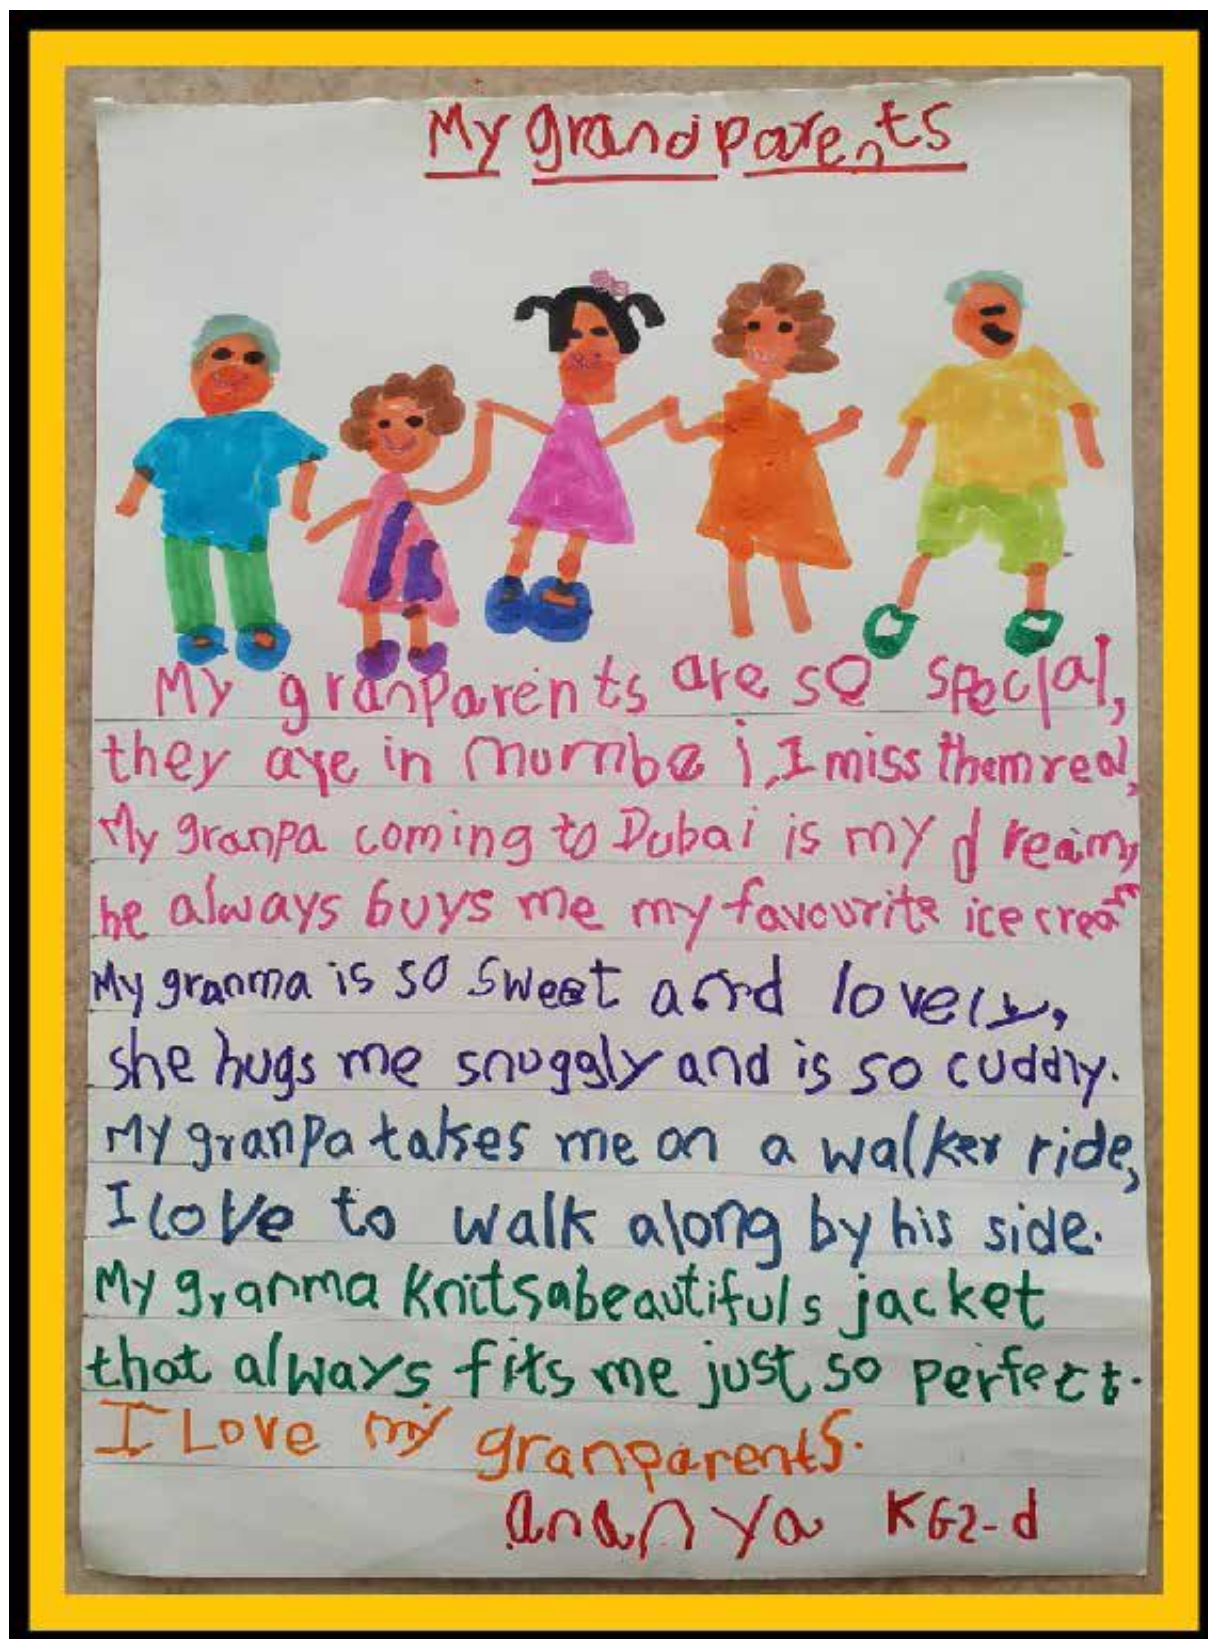 My grandparents
My granparents are so special,
they are in mumbai, I miss them real,
My granpa coming to Dubai is my dream,
he always buys me my favourite ice cream
My granma is so sweet and lovely,
she hugs me snuggly and is so cuddly.
My granpa takes me on a walker ride,
I love to walk along by his side.
My granma knits a beautifuls jacket
that always fits me just so perfect.
I Love my granparents.
ananya KG2-d